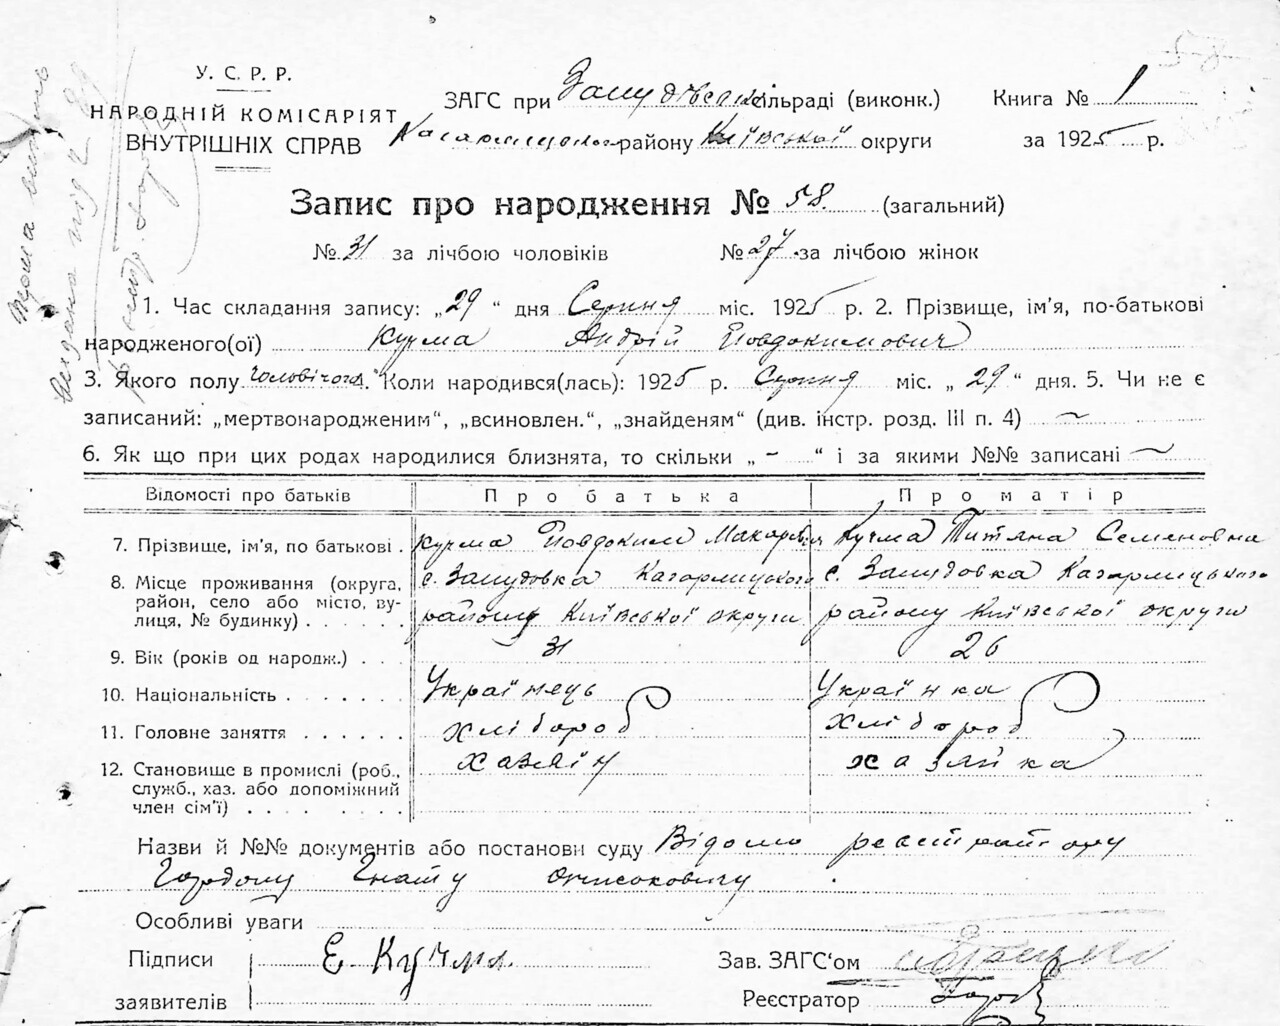 У. С. Р. Р.
НАРОДНІЙ КОМІСАРІЯТ
ВНУТРІШНІХ СПРАВ
ЗАГС при сільраді (виконк.) Книга № 1
району Київської округи за 1925 р.
Запис про народження № 58. (загальний)
№ 31 за лічбою чоловіків № 27 за лічбою жінок
1. Час складання запису: „29“ дня Серпня міс. 1925 р. 2. Прізвище, ім'я, по-батькові
народженого(ої) Кучма Андрій Йовдокимович
3. Якого полу чоловічого. Коли народився(лась): 1925 р. Серпня міс. „29“ дня. 5. Чи не є
записаний: „мертвонародженим“, „всиновлен.“, „знайденям“ (див. інстр. розд. III п. 4) ~
6. Як що при цих родах народилися близнята, то скільки „-“ і за якими №№ записані ~
Відомості про батьків Про батька Про матір
7. Прізвище, ім'я, по батькові . Кучма Йовдоким Макарович Кучма Титяна Семеновна
8. Місце проживання (округа, с. Замудовка Кагарлицького с. Замудовка Кагарлицького
район, село або місто, ву-
лиця, № будинку) . . . . . . району Київської округи району Київської округи
9. Вік (років од народж.) . . . 31 26
10. Національність . . . . . . . Українець Українка
11. Головне заняття . . . . . . Хлібороб Хлібороб
12. Становище в промислі (роб., хазяїн хазяйка
служб., хаз. або допоміжний
член сім'ї) . . . . . . . .
Назви й №№ документів або постанови суду Відомо реєстратору
Гнату
Особливі уваги
Підписи Е. Кучма. Зав. ЗАГС'ом
заявителів Реєстратор